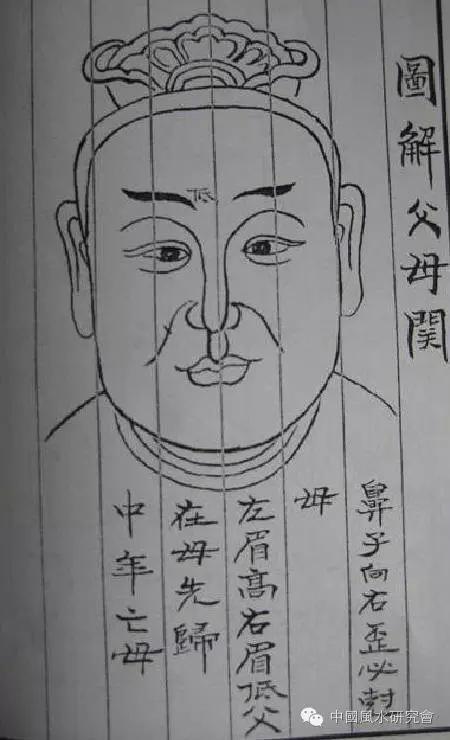 圖解父母関
鼻子向右歪必尅
母
左眉高右眉低父
在母先歸
中年亡母
低
中國風水研究會